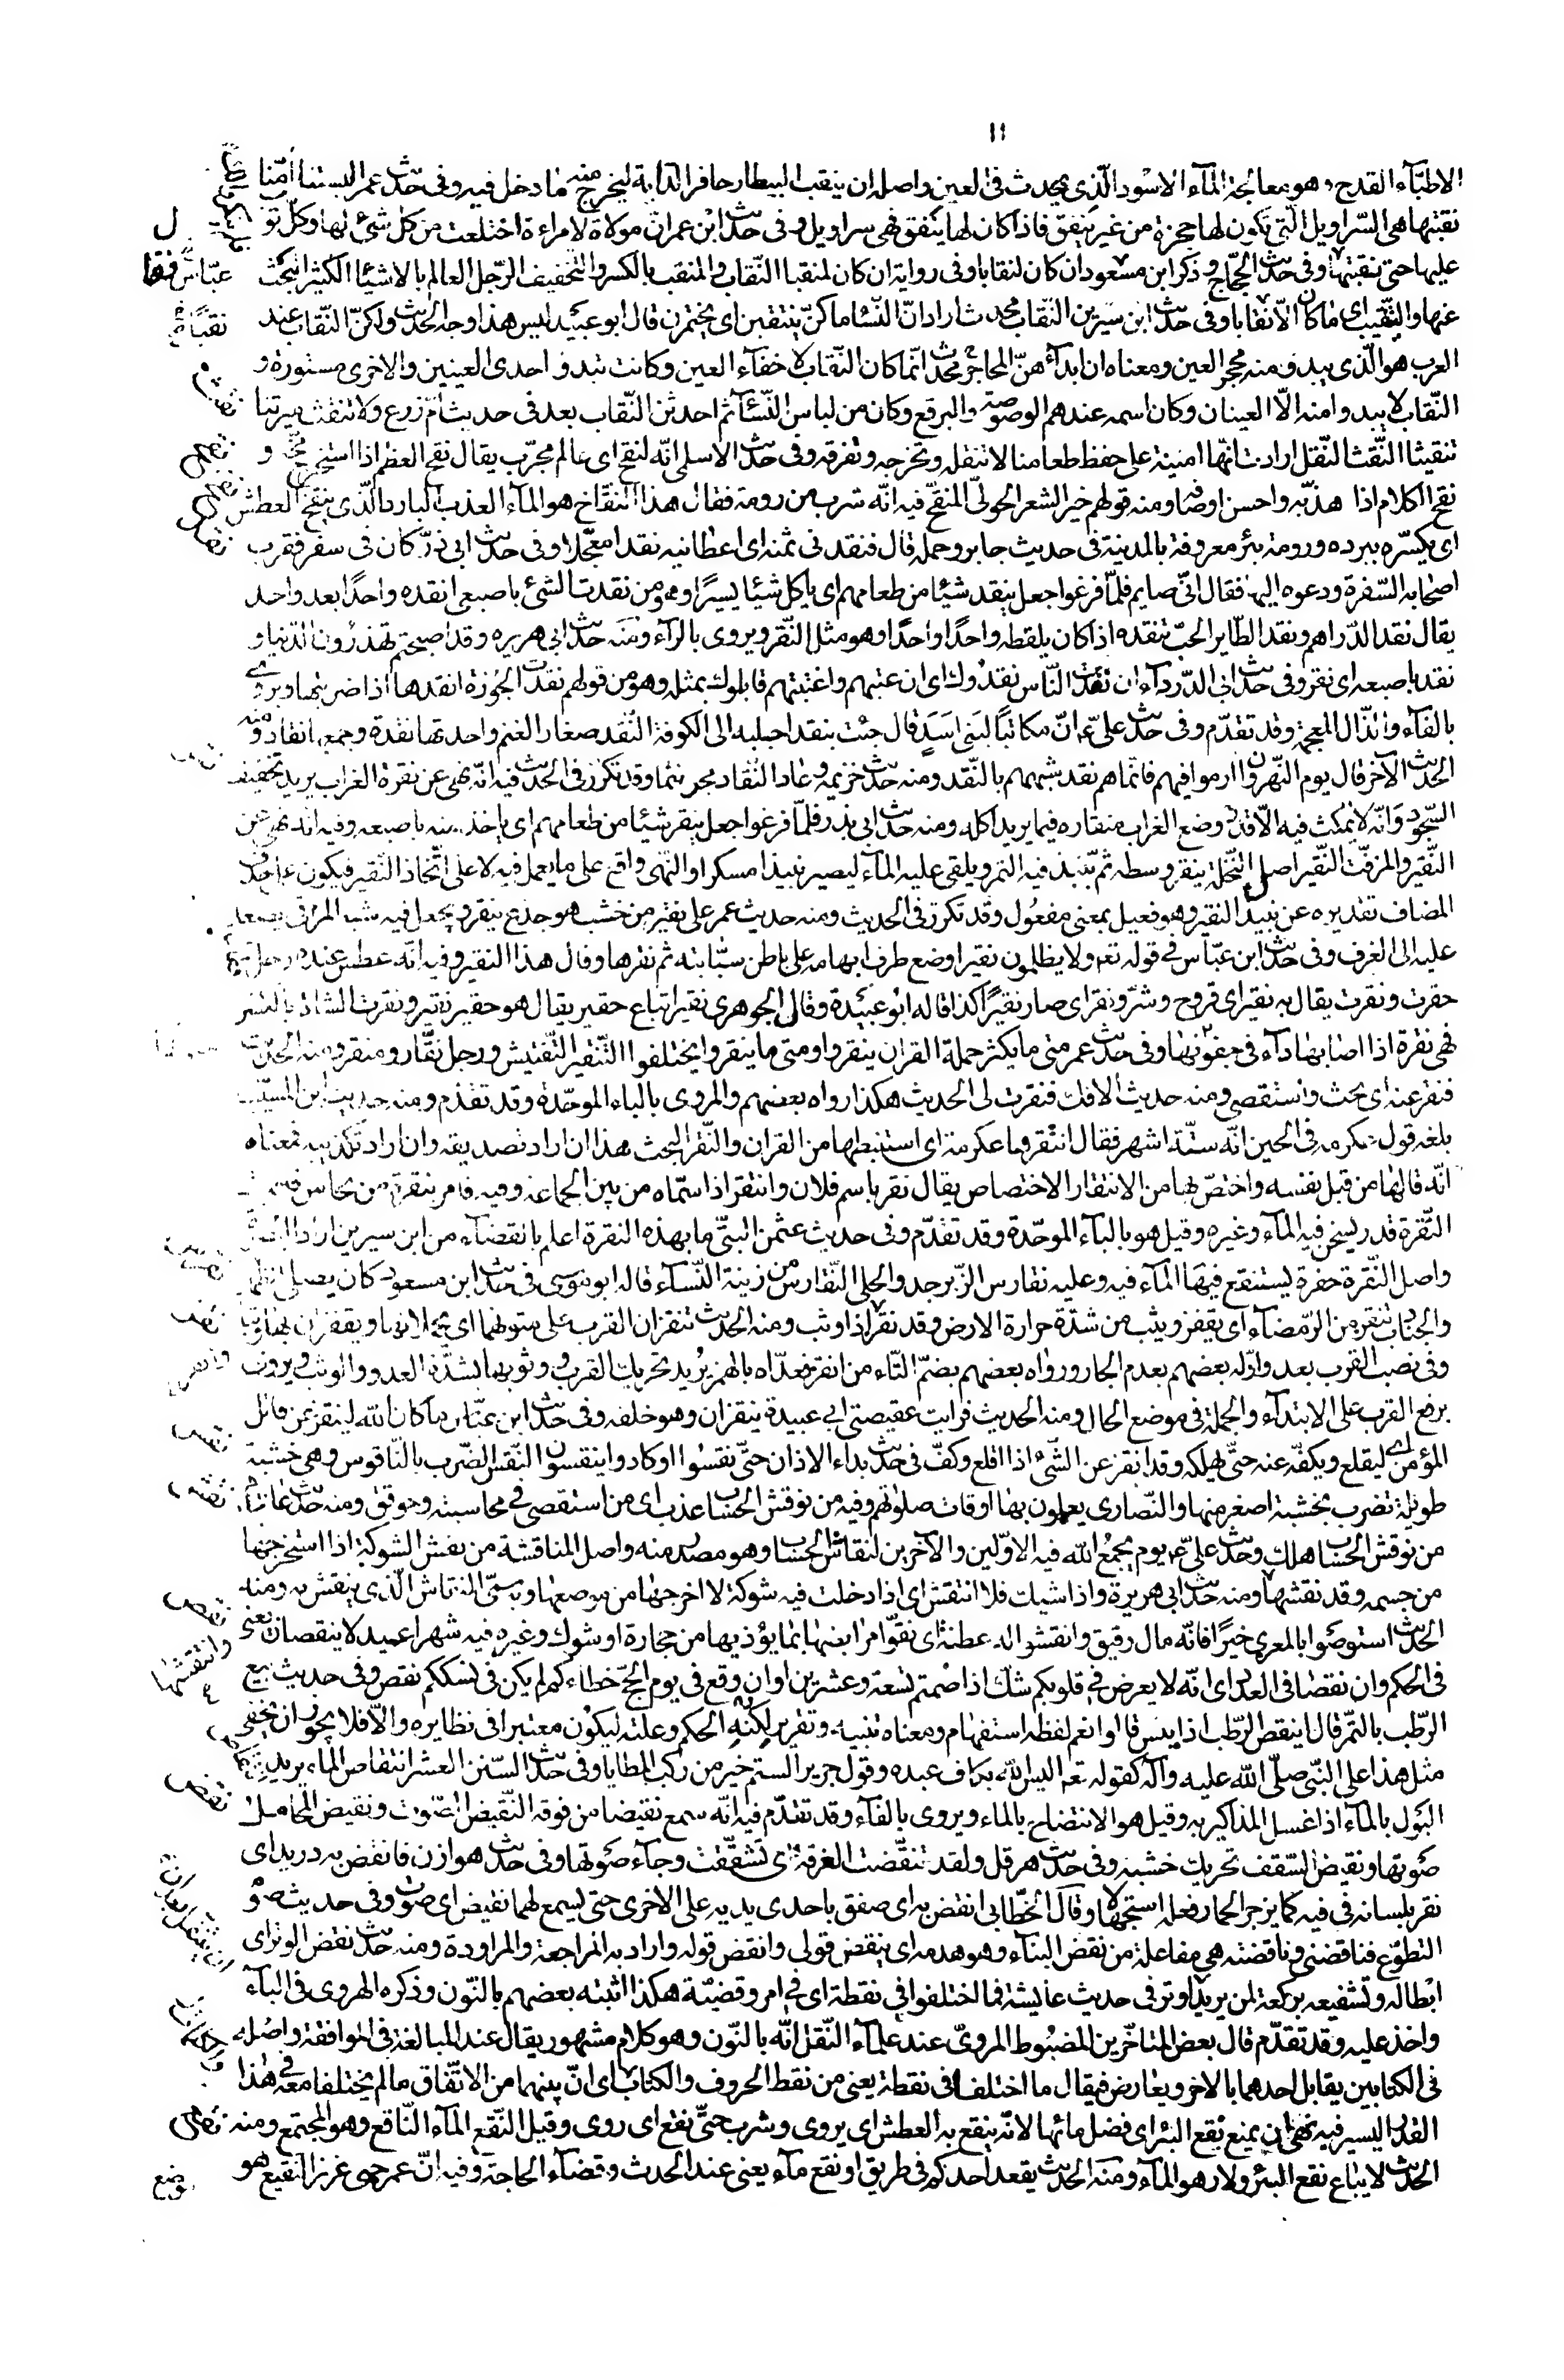 ١١
الاطبّآء القدح وهو معالجة المآء الاسود الّذى يحدث فى العين واصله ان ينقب البيطار حافر الدّابة ليخرج منه ما دخل فيه وفى حدّيث عمر البستنا امّنا
نقبتها هى السّراويل الّتى تكون لها حجزة من غير ينفق فاذا كان لها ينفق فهى سراويل وفى حديث ابن عمر انّ مولاة لامراءة اختلعت من كلّ شئ لها وكلّ ثو
عليها حتى نقبتها وفى حديث الحجّاج وذكر ابن عبّاس فقال ان كان لنقابا وفى رواية ان كان لمنقبا النّقاب والمنقب بالكسر والتّخفيف الرّجل العالم بالاشيآ الكثير البحث
عنها والتّنقيب اى ما كان الّا نقابا وفى حديث ابن سيرين النّقاب محدث اراد انّ النّسا ما كنّ ينتقبن اى يختمرن قال ابو عبيد ليس هذا وجه الحديث ولكنّ النّقاب عند
العرب هو الّذى يبدو منه محجر العين ومعناه ان ابدآءهنّ المحاجر محدث انّما كان النّقاب لاخفآء العين وكانت تبدو احدى العينين والاخرى مستورة و
النّقاب لا يبدو منه الّا العينان وكان اسمه عندهم الوصوصة والبرقع وكان من لباس النّسآ ثم احدثن النّقاب بعد فى حديث امّ زرع ولا تنقث ميرتنا
تنقيثا النّقث النّقل ارادت انّها امينة على حفظ طعامنا لا تنقله وتخرجه وتفرقه وفى حديث الاسلمى انّه لنقح اى عالم مجرّب يقال نقح العظم اذا استخرج مخّه و
نقح الكلام اذا هذّبه واحسن اوصافه ومنه قولهم خير الشعر الحولىّ المنقّح فيه انّه شرب من رومة فقال هذا النّقاخ هو المآء العذب البارد الّذى ينقخ العطش
اى يكسّره ببرده ورومة بئر معروفة بالمدينة فى حديث جابر وجمله قال فنقد نى ثمنه اى اعطانيه نقدا معجّلا وفى حديث ابى ذرّ كان فى سفر فقرب
اصحابه السّفرة ودعوه اليها فقال انّى صايم فلمّا فرغوا جعل ينقد شيئا من طعامهم اى ياكل شيئا يسيرًا وهو من نقدت الشئ باصبعى انقده واحدًا بعد واحد
يقال نقد الدّراهم ونقد الطّاير الحبّ ينقده اذا كان يلقطه واحدًا واحدًا وهو مثل النّقر ويروى بالرّآء ومنه حديث ابى هريره وقد اصبحتم تهذرون الدّنيا و
نقد باصبعه اى نقر وفى حديث ابى الدّردآء ان نقدت النّاس نقدوك اى ان عبتهم واغتبتهم قابلوك بمثله وهو من قولهم نقدت الجوزة انقدها اذا ضربتها ويروى
بالفآء والذّال المعجمة وقد تقدّم وفى حديث علىّ ع انّ مكاتبًا لبنى اسد قال جئت بنقد اجلبه الى الكوفة النّقد صغار الغنم واحدتها نقدة وجمعها نقاد ومنه
الحديث الآخر قال يوم النّهروان ارموا فيهم فانّما هم نقد شبّههم بالنّقد ومنه حديث خزيمة وعاد النّقاد مجرنثما وقد تكرّر فى الحديث فيه انّه نهى عن نقرة الغراب يريد تخفيف
السّجود وانّه لا يمكث فيه الّا قدر وضع الغراب منقاره فيما يريد اكله ومنه حديث ابى ذر فلمّا فرغوا جعل ينقر شيئا من طعامهم اى ياخذ منه باصبعه وفيه انّه نهى عن
النّقير والمزفّت النّقير اصل النّخلة ينقر وسطه ثم ينبذ فيه التمر ويلقى عليه المآء ليصير نبيذا مسكرا والنّهى واقع على ما يعمل فيه لا على اتّخاذ النّقير فيكون على حذف
المضاف تقديره عن نبيذ النقير وهو فعيل بمعنى مفعول وقد تكرّر فى الحديث ومنه حديث عمر على نقير من خشب هو جذع ينقر ويجعل فيه شبه المراقى يصعد
عليه الى الغرف وفى حديث ابن عبّاس فى قوله تعه ولا يظلمون نقيرا وضع طرف ابهامه على باطن سبّابته ثم نقرها وقال هذا النقير وفيه انّه عطس عنده رجل
حقرت ونقرت يقال به نقير اى قروح وشرّ ونقر اى صار نقيرًا كذا قاله ابو عبيدة وقال الجوهرى نقير اتباع حقير يقال هو حقير نقير ونقرت الشاة بالكسر
فهى نقرة اذا اصابها دآء فى جنوبها وفى حديث عمر متى ما يكثر حملة القران ينقروا ومتى ما ينقروا يختلفوا التّنقير التّفتيش ورجل نقّار ومنقر ومنه الحديث
فنقر عنه اى بحث واستقصى ومنه حديث الافك فنقرت لى الحديث هكذا رواه بعضهم والمروى بالباء الموحّدة وقد تقدّم ومنه حديث ابن المسيّب
بلغه قول عكرمة فى الحين انّه ستّة اشهر فقال انتقرها عكرمة اى استنبطها من القران والنّقر البحث هذا ان اراد تصديقه وان اراد تكذيبه فمعناه
انّه قالها من قبل نفسه واختصّ بها من الانتقار الاختصاص يقال نقر باسم فلان وانتقر اذا سمّاه من بين الجماعة وفيه فامر بنقرة من نحاس
النّقرة قدر يسخن فيه المآء وغيره وقيل هو بالبآء الموحّدة وقد تقدّم وفى حديث عثمن البتّى ما بهذه النقرة اعلم بالقضآء من ابن سيرين اراد البصرة
واصل النّقرة حفرة يستنقع فيها المآء فيه وعليه نقارس الزّبرجد والحلى النّقارس من زينة النّسآء قاله ابو موسى فى حديث ابن مسعود كان يصلى الظهر
والجنادب تنقز من الرّمضآء اى يقفز ويثب من شدّة حرارة الارض وقد نقز اذا وثب ومنه الحديث تنقزان القرب على متونهما اى يحملانها ويقفزان بها وثبا
وفى نصب القرب بعد واوّله بعضهم بعدم الجار ورواه بعضهم بضمّ التّاء من انقز فعدّاه بالهمز يريد تحريك القرب ووثوبها بشدّة العدو والوثب ويروى
برفع القرب على الابتدآء والجملة فى موضع الحال ومنه الحديث فرايت عقيصتى ابى عبيدة ينقزان وهو خلفه وفى حديث ابن عبّاس ما كان الله لينقز عن قاتل
المؤمن اى ليقلع ويكفّه عنه حتّى يهلكه وقد انقز عن الشئ اذا اقلع وكفّ فى حديث بداء الاذان حتّى نقسوا او كادوا ينقسون النّقس الضّرب بالنّاقوس وهى خشبة
طويلة تضرب بخشبة اصغر منها والنّصارى يعلمون بها اوقات صلوتهم وفيه من نوقش الحساب عذب اى من استقصى فى محاسبته وحوقق ومنه حديث عائشة
من نوقش الحساب هلك وحديث علىّ ع يوم يجمع الله فيه الاوّلين والآخرين لنقاش الحساب وهو مصدر منه واصل المناقشة من نقش الشوكة اذا استخرجتها
من جسمه وقد نقشها ومنه حديث ابى هريرة واذا شيك فلا انتقش اى اذا دخلت فيه شوكة لا اخرجها من موضعها وبه سمّى المنقاش الّذى ينقش به ومنه
الحديث استوصوا بالمعزى خيرًا فانّه مال رقيق وانقشوا له عطنه اى نقّوا مرابضها ممّا يؤذيها من حجارة او شوك وغيره فيه شهرا عيد لا ينقصان يعنى
فى الحكم وان نقصا فى العدد اى انّه لا يعرض فى قلوبكم شك اذا صمتم تسعة وعشرين او ان وقع فى يوم الحجّ خطاء كم لم يكن فى نسككم نقص وفى حديث بيع
الرّطب بالتّمر قال اينقص الرّطب اذا يبس قالوا نعم لفظه استفهام ومعناه تنبيه وتقرير لكنه الحكم وعلّته ليكون معتبرا فى نظايره والّا فلا يجوز ان يخفى
مثل هذا على النّبى صلّى الله عليه وآله كقوله تعه اليس الله بكاف عبده وقول جرير الستم خير من ركب المطايا وفى حديث السّنن العشر انتقاص الماء يريد
البول بالمآء اذا غسل المذاكير به وقيل هو الانتضاح بالماء ويروى بالفآء وقد تقدّم فيه انّه سمع نقيضا من فوقه النّقيض الصّوت ونقيض المحامل
صوتها ونقيض السّقف تحريك خشبه وفى حديث هرقل ولقد تنقّضت الغرفة اى تشقّقت وجآء صوتها وفى حديث هوازن فانقض به دريد اى
نقر بلسانه فى فيه كما يزجر الحمار فعله استجهالا وقال الخطّابى انقض به اى صفق باحدى يديه على الاخرى حتى يسمع لهما نقيض اى صوت وفى حديث صوم
التطوّع فناقضنى وناقضته هى مفاعلة من نقض البناء وهو هدمه اى ينقض قولى وانقض قوله واراد به المراجعة والمراودة ومنه حديث نقض الوتر اى
ابطاله وتشفيعه بركعة لمن يريد اوتر فى حديث عايشة فما اختلفوا فى نقطة اى فى امر وقضيّة هكذا اثبته بعضهم بالنّون وذكره الهروى فى البآء
واخذ عليه وقد تقدّم قال بعض المتاخّرين المضبوط المروىّ عند علمآء النّقل انّه بالنّون وهو كلام مشهور يقال عند المبالغة فى الموافقة واصله
فى الكتابين يقابل احدهما بالاخر ويعارض فيقال ما اختلفا فى نقطة يعنى من نقط الحروف والكتاب اى انّ بينهما من الاتّفاق ما لم يختلفا معه فى هذا
القدر اليسير فيه نهى ان يمنع نقع البئر اى فضل مائها لانّه ينقع به العطش اى يروى وشرب حتّى نقع اى روى وقيل النّقع المآء النّاقع وهو المجتمع ومنه
الحديث لا يباع نقع البئر ولا رهو المآء ومنه الحديث يقعد احدكم فى طريق او نقع مآء يعنى عند الحدث وقضآء الحاجة وفيه انّ عمر حمى غرز النّقيع هو